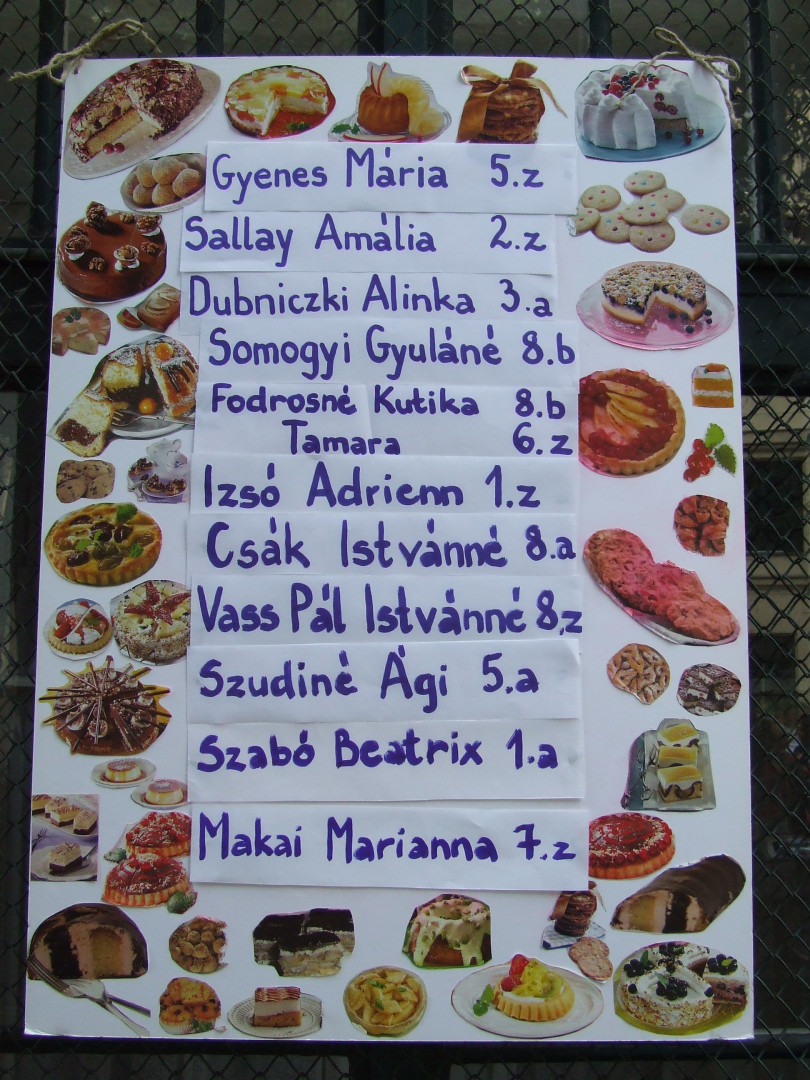 Gyenes Mária 5.z
Sallay Amália 2.z
Dubniczki Alinka 3.a
Somogyi Gyuláné 8.b
Fodrosné Kutika 8.b
Tamara 6.z
Izsó Adrienn 1.z
Csák Istvánné 8.a
Vass Pál Istvánné 8.z
Szudiné Ági 5.a
Szabó Beatrix 1.a
Makai Marianna 7.z